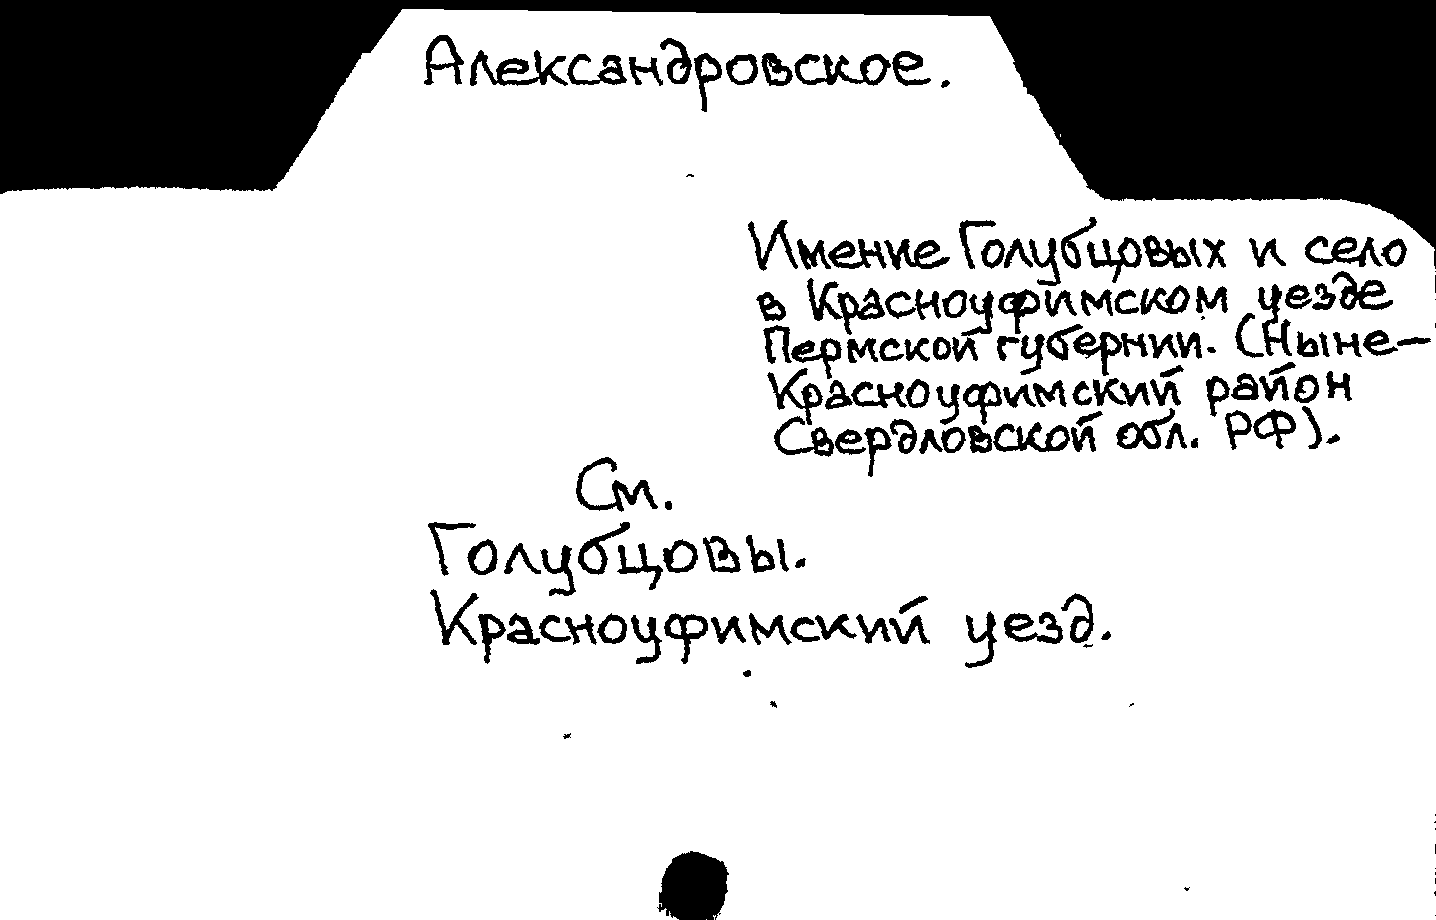 Александровское.
Имение Голубцовых и село
в Красноуфимском уезде
Пермской губернии. (Ныне—
Красноуфимский район
Свердловской обл. РФ).
См.
Голубцовы.
Красноуфимский уезд.